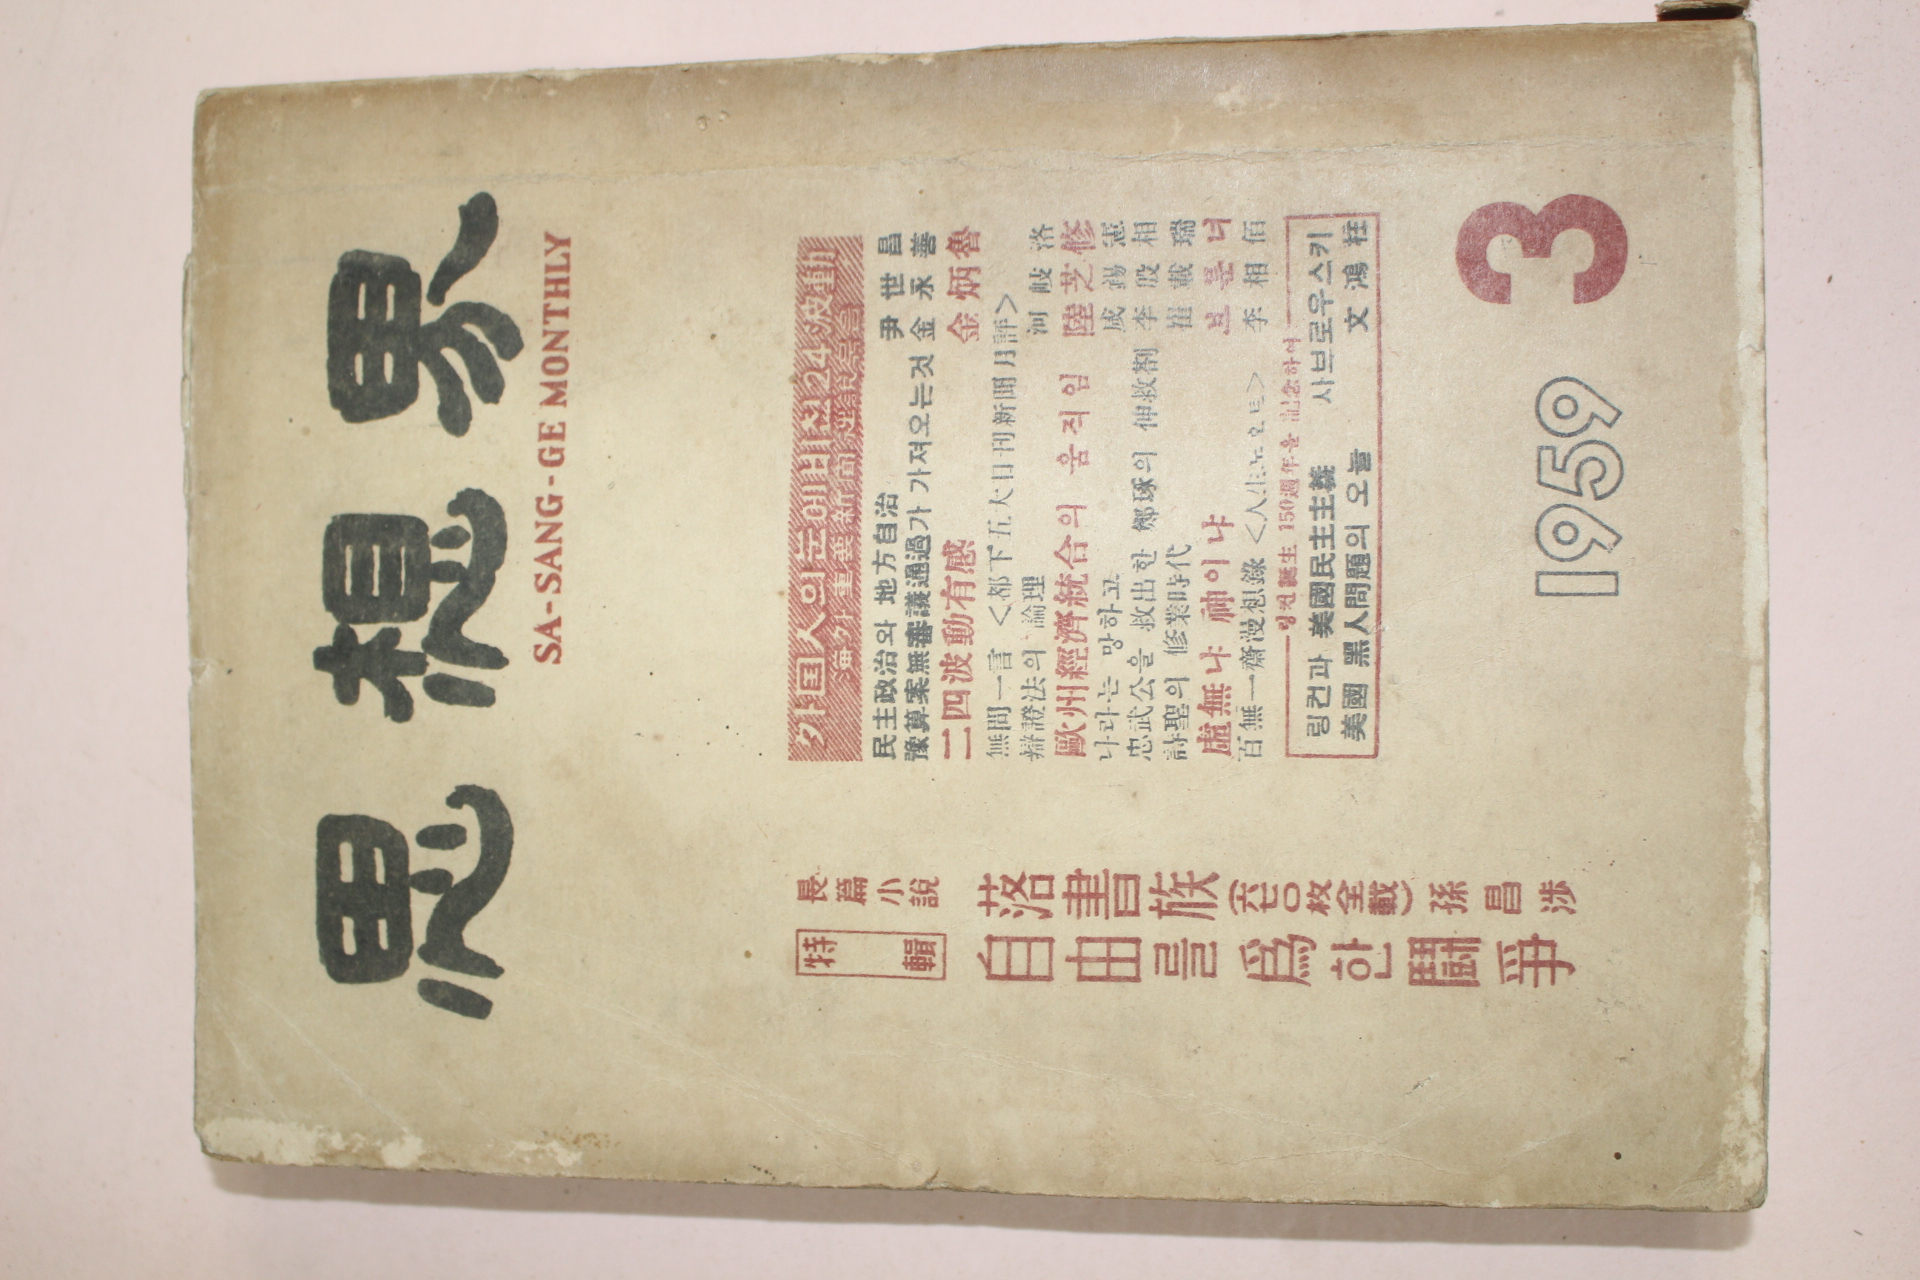 思想界
SA-SANG-GE MONTHLY
外国人의눈에비친24波動
海外重要新聞
民主政治와 地方自治 尹世昌
豫算案無審議通過가 가져오는것 金永善
二四波動有感 金炳魯
無問一言 <都下五大日刊新聞月評>
辯證法의 論理 河岐洛
歐州經濟統合의 움직임 陸芝修
나라는 망하고 咸錫憲
忠武公을 救出한 鄭琢의 伸救箚 李殷相
詩聖의 修業時代 崔載瑞
虛無냐 神이냐 브룬너
百無一齋漫想錄 <人生노오트> 李相佰
링컨誕生 150週年을 記念하여
링컨과 美國民主主義 사브로우스키
美國 黑人問題의 오늘 文鴻柱
長篇小說
落書族 (六七〇枚全載) 孫昌涉
特輯
自由를 爲한 鬪爭
1959
3